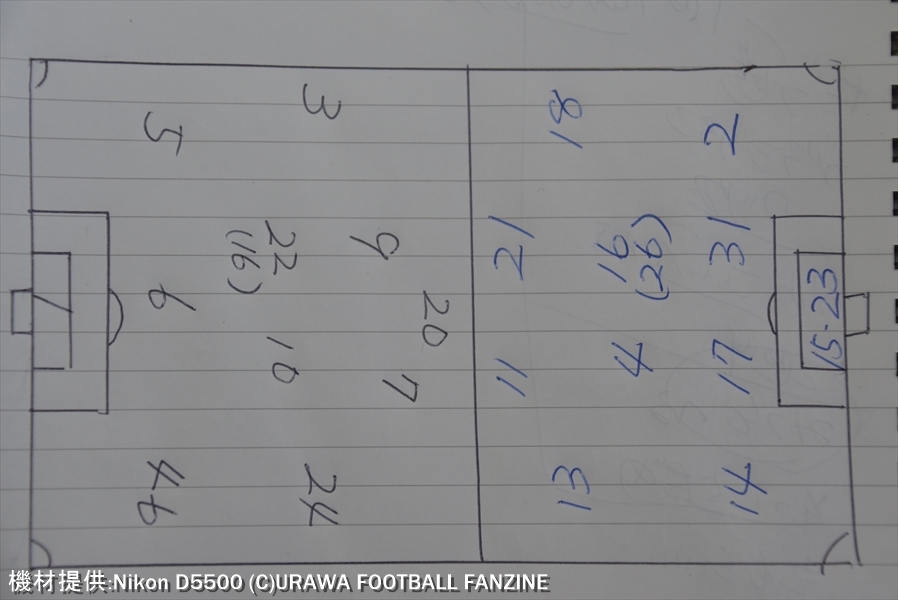 3
5
9
22
(16)
6
20
10
7
1
46
24
18
2
21
16
(26)
31
15·23
11
4
17
13
14
機材提供:Nikon D5500 (C)URAWA FOOTBALL FANZINE